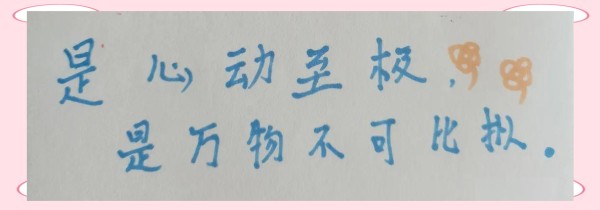 是心动至极，
是万物不可比拟.